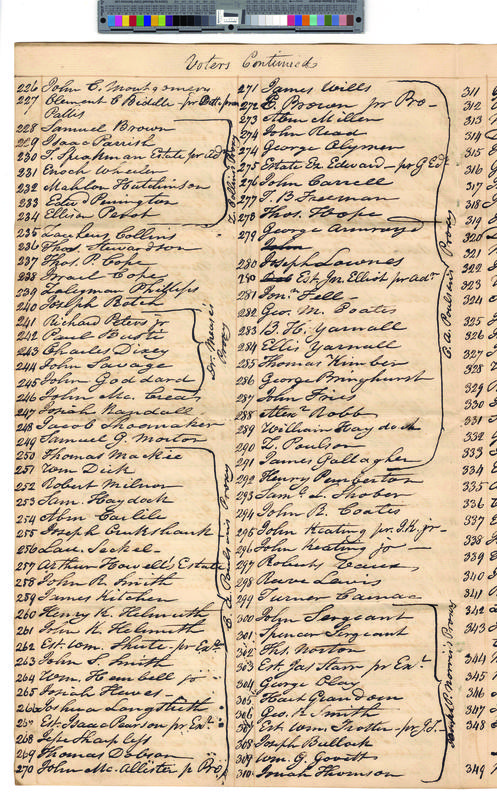 Voters Continued
226 John C. Montgomery
227 Clement C Biddle pr
Pettis
228 Samuel Brown
229 Isaac Parrish
230 T. Speakman Estate pr Ad
231 Enoch Wheeler
232 Mahlon Hutchinson
233 Edw Penington
234 Ellison Perot
235 Zaccheus Collins
236 Thos. Stewardson
237 Thos. P. Cope
238 Israel Cope
239 Zalegman Phillips
240 Joseph Botch
241 Richard Peters jr
242 Paul Busti
243 Charles Dixey
244 John Savage
245 John Goddard
246 John Mc. Crea
247 Josiah Randall
248 Jacob Shoemaker
249 Samuel G. Morton
250 Thomas Mackie
251 Wm Dick
252 Robert Milnor
253 Sam. Haydock
254 Abm Carlile
255 Joseph Crukshank
256 Law. Seckel
257 Arthur Howell's Estate
258 John R. Smith
259 James Kitchen
260 Henry K. Helmuth
261 John K. Helmuth
262 Est. Wm. Shute pr Exr
263 John S. Smith
264 Wm. Hembell jr
265 Josiah Hewes
266 Joshua Longstreth
267 Est. Isaac Pearson pr. Exr
268 Jesse Sharpless
269 Thomas Dobson
270 John Mc. Allister p Pro
Z. Collins Proxy
Dr. Mease's
Proxy
C. A. Poulson's Proxy
271 James Wills
272 E. Brown pr Pro
273 Abm Miller
274 John Read
274 George Clymer
275 Estate Ex Edward pr G Ed
276 John Carrell
277 T. B Freeman
278 Thos. Hope
279 George
280 Joseph Lownes
280 Est. Jn. Elliot pr
281 Jon. Fell
282 Geo. M. Coates
283 B. H. Yarnall
284 Ellis Yarnall
285 Thomas Kimber
286 George Bringhurst
287 John Fries
288 Alexr Robb
289 William Haydock
290 Z. Poulson
291 James Gallagher
292 Henry Pemberton
293 Saml L. Shober
294 John R. Coates
295 John Keating pr. J.K. jr
296 John Keating jr
297 Roberts Vaux
298 Reeve Lewis
299 Turner Camac
300 John Sergeant
301 Spencer Sergeant
302 Ths. Norton
303 Est. Jas Starr pr Exr
304 George Clay
305 Hart Grandom
306 Geo. K Smith
307 Est Wm Trotter pr J.T.
308 Joseph Bullock
309 Wm. G. Govett
310 Josiah Thomson
C. A. Poulson's Proxy
Joseph P. Norris Proxy
311
312
313
314
315
316
317
318
319
320
321
322
323
324
325
327
328
329
330
331
332
333
334
335
336
337
338
339
340
341
342
343
344
345
346
347
348
349